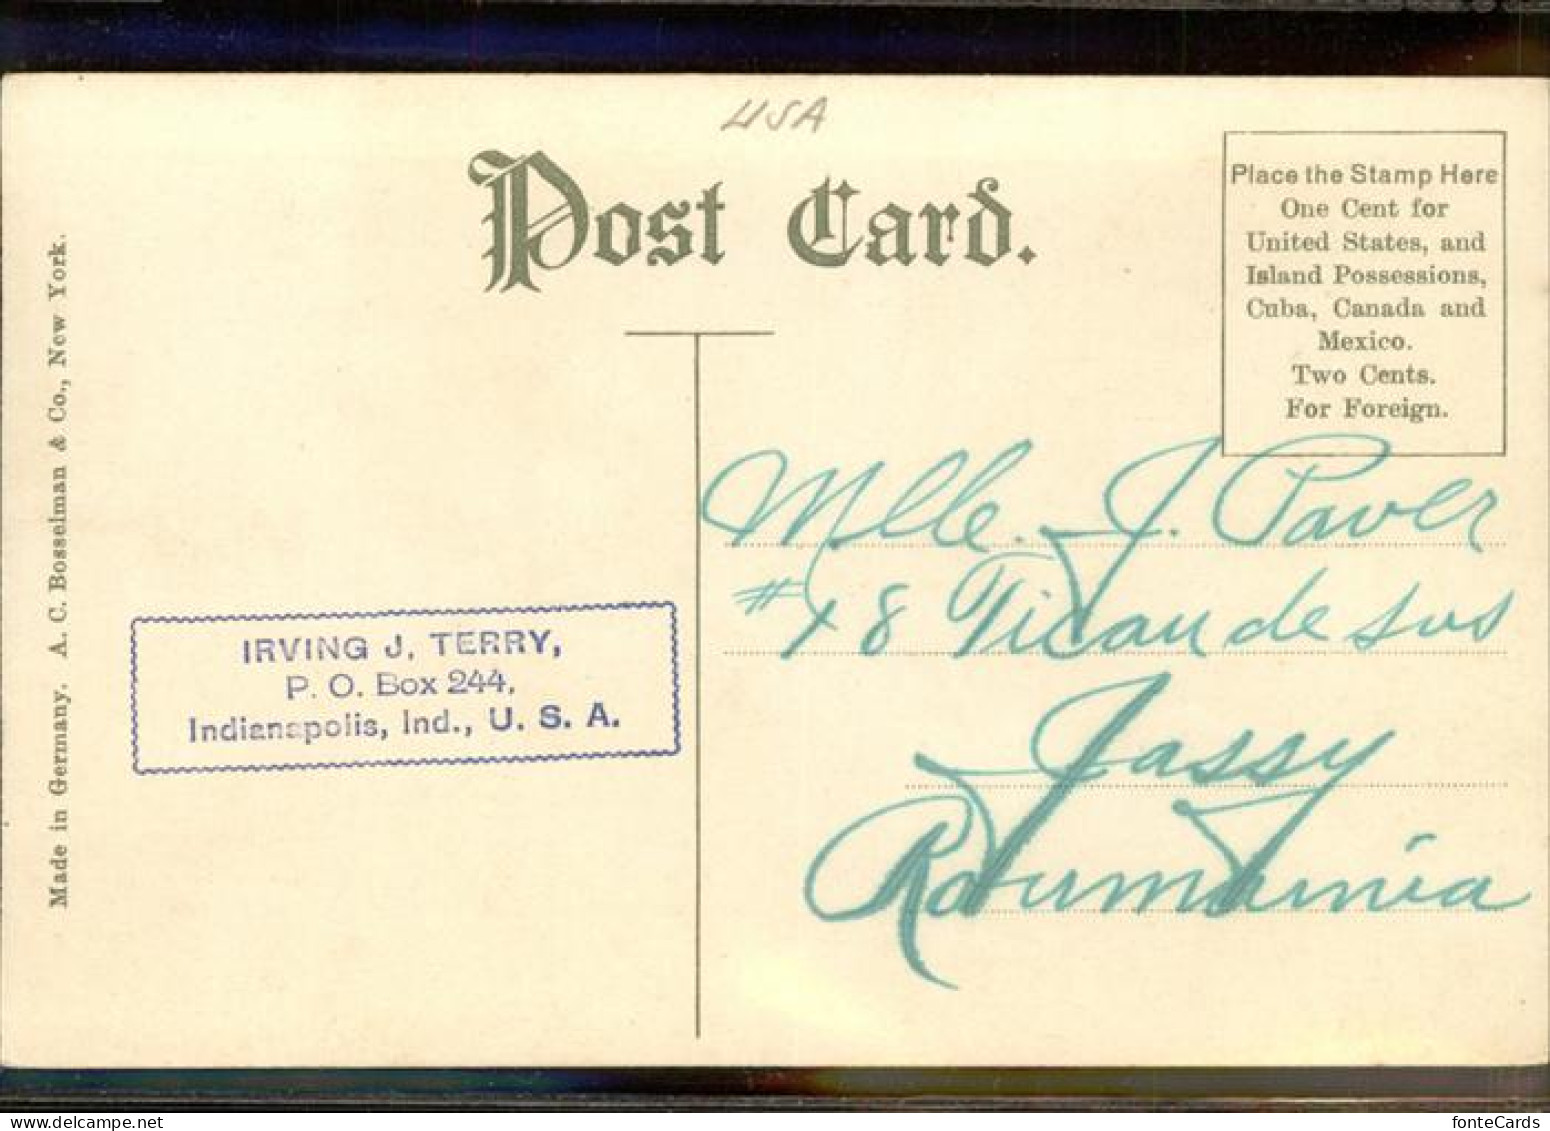 USA
Post Card.
Place the Stamp Here
One Cent for
United States, and
Island Possessions,
Cuba, Canada and
Mexico.
Two Cents.
For Foreign.
Made in Germany. A. C. Bosselman & Co., New York.
IRVING J. TERRY,
P. O. Box 244,
Indianapolis, Ind., U. S. A.
Mlle. J. Paver
#48 Ticau de sus
Jassy
Roumania
fonteCards